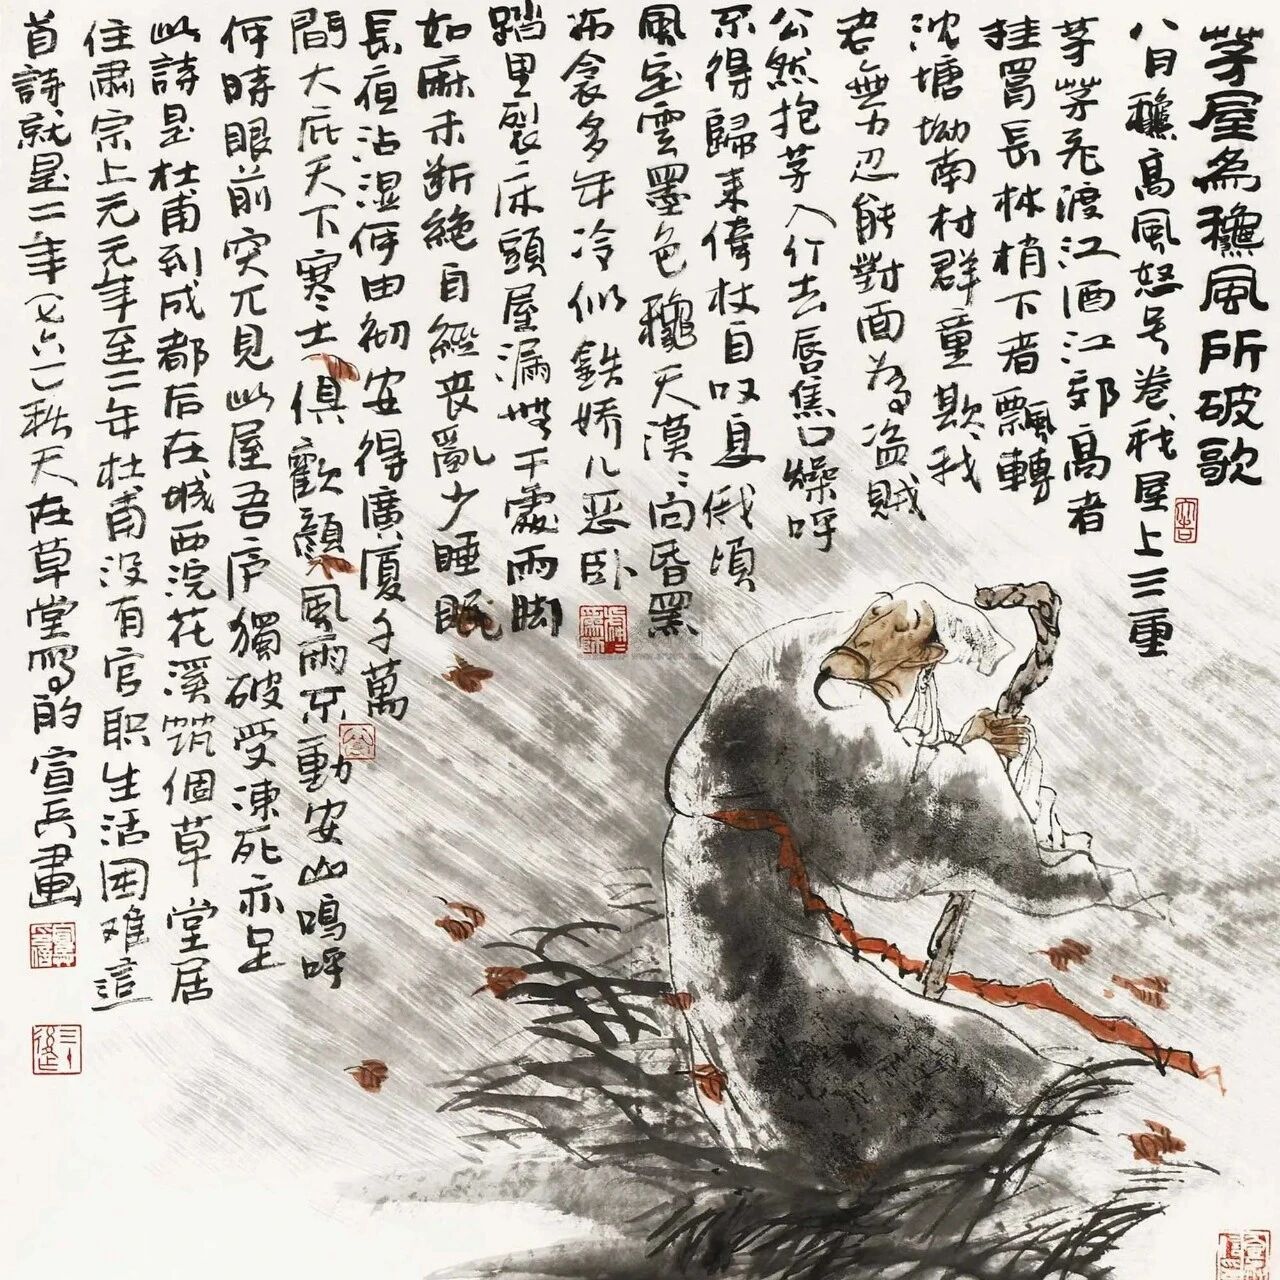 茅屋為龝風所破歌
八月龝高風怒号卷我屋上三重
茅茅飛渡江洒江郊高者
挂罥長林梢下者飄轉
沈塘坳南村群童欺我
老無力忍能對面為盗賊
公然抱茅入竹去唇焦口燥呼
不得歸来倚杖自叹息俄頃
風定雲墨色龝天漠〻向昏黑
布衾多年冷似鉄娇儿恶卧
踏里裂床頭屋漏無干處雨脚
如麻未断絶自經丧亂少睡眠
長夜沾湿何由彻安得廣厦千萬
間大庇天下寒士俱歡顔風雨不動安山嗚呼
何時眼前突兀見此屋吾庐獨破受凍死亦足
此詩是杜甫到成都后在城西浣花溪筑個草堂居
住肅宗上元元年至二年杜甫没有官职生活困难這
首詩就是二年(七六一)秋天在草堂寫的宣兵畫